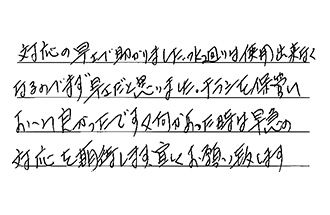 対応の早さで助かりました。水廻りは使用出来なく
なるのでまず早さだと思いました。チラシを保管い
おいて良かったです又何かあった時は早急の
対応を期待します。宜しくお願い致します